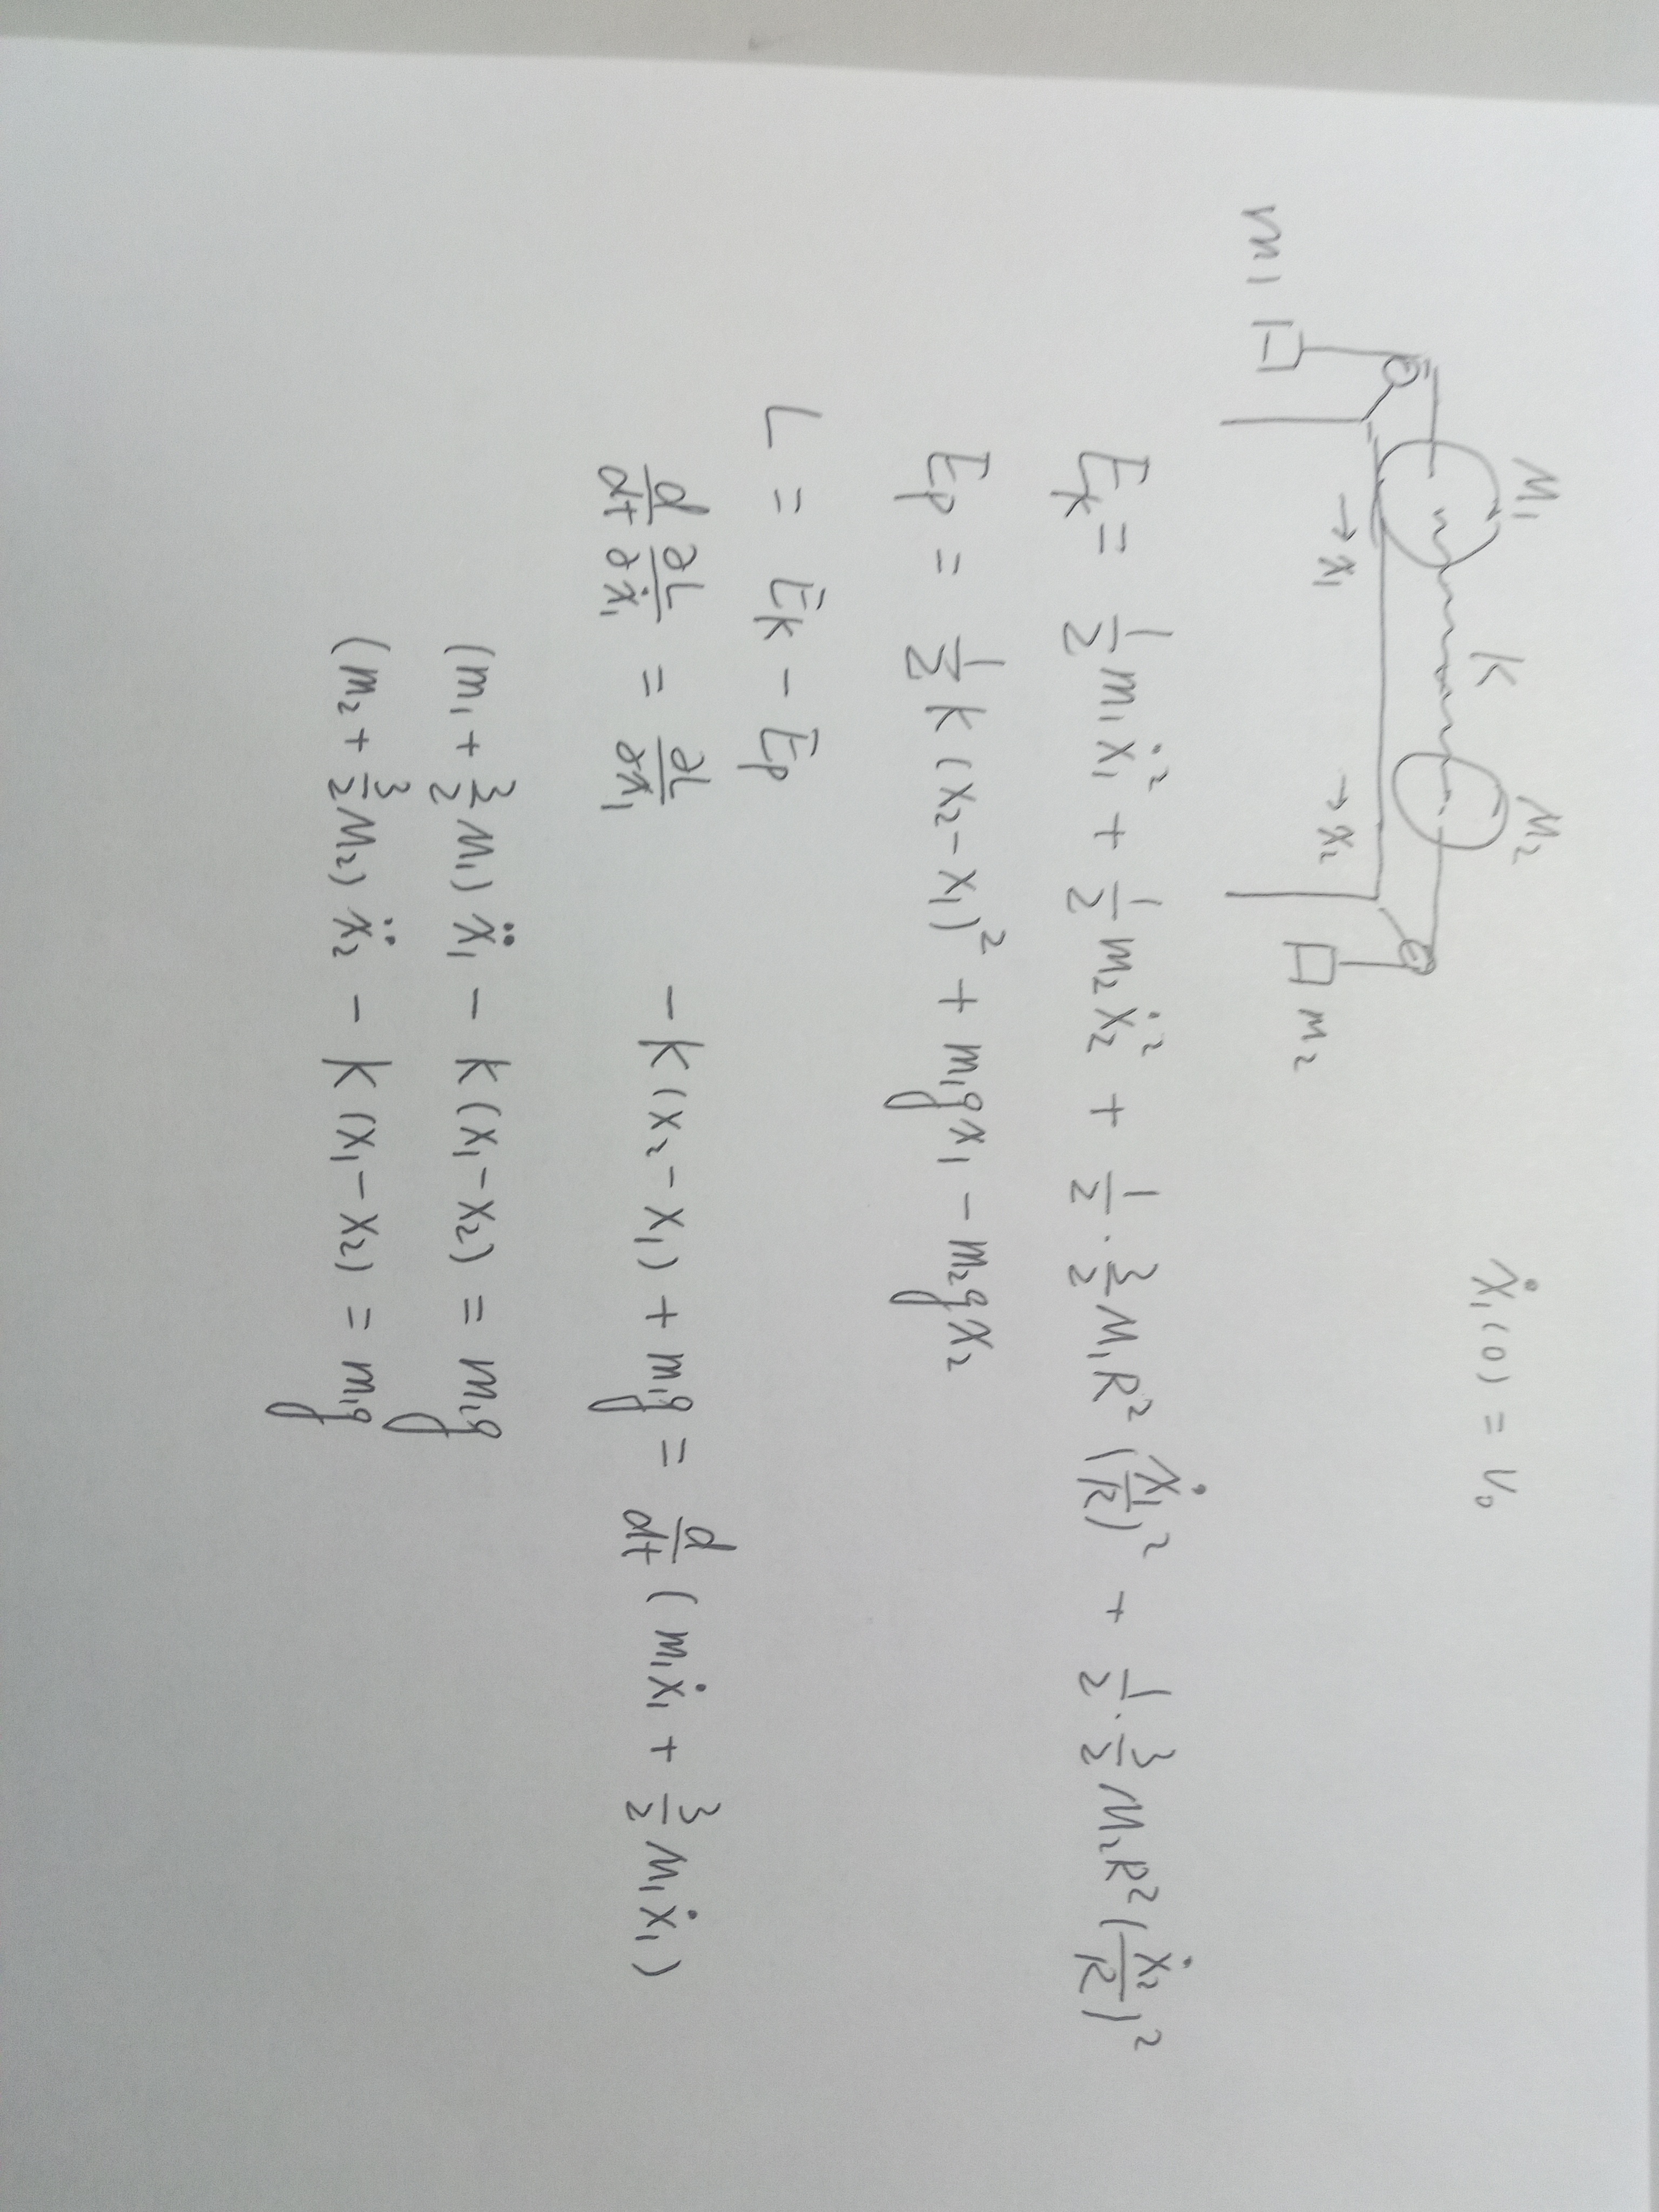 M₁ K M₂ ẋ₁(0) = V₀
→ x₁ → x₂
m₁ m₂
Eₖ = 1/2 m₁ẋ₁² + 1/2 m₂ẋ₂² + 1/2 · 3/2 M₁R² (ẋ₁/R)² + 1/2 · 3/2 M₂R² (ẋ₂/R)²
Eₚ = 1/2 k (x₂ - x₁)² + m₁gx₁ - m₂gx₂
L = Eₖ - Eₚ
d/dt ∂L/∂ẋ₁ = ∂L/∂x₁ -k(x₂ - x₁) + m₁g = d/dt (m₁ẋ₁ + 3/2 M₁ẋ₁)
(m₁ + 3/2 M₁) ẍ₁ - k(x₁ - x₂) = m₁g
(m₂ + 3/2 M₂) ẍ₂ - k(x₁ - x₂) = m₁g